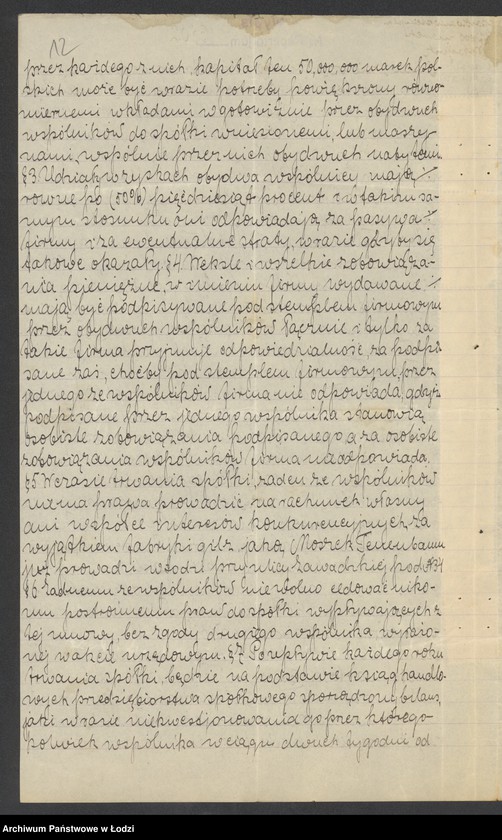 12
przez każdego z nich, kapitał ten 50,000,000 marek pol-
skich może być w razie potrzeby powiększony równo-
miernemi wkładami w gotowiźnie przez obydwuch
wspólników do spółki wniesionemi, lub maszy-
nami, wspólnie przez nich obydwuch nabytemi
§3. Udział w zyskach obydwa wspólnicy mają
równe po (50%) pięćdziesiąt procent i w takim sa-
mym stosunku oni odpowiadają za pasywa
firmy i za ewentualne straty, w razie gdyby się
takowe okazały. §4. Weksle i wszelkie zobowiąza-
nia pieniężne, w imieniu firmy wydawane
mają być podpisywane pod stemplem firmowym
przez obydwuch wspólników łącznie i tylko za
takie firma przyjmuje odpowiedzialność, za podpi-
sane zaś, choćby pod stemplem firmowym, przez
jednego ze wspólników firma nie odpowiada, gdyż
podpisane przez jednego wspólnika stanowią
osobiste zobowiązania podpisanego, a za osobiste
zobowiązania wspólników firma nie odpowiada.
§5 W czasie trwania spółki, żaden ze wspólników
nie ma prawa prowadzić na rachunek własny
ani w spółce interesów konkurencyjnych, za
wyjątkiem fabryki gilz jaką Moszek Tenenbaum
już prowadzi w Łodzi przy ulicy Zawadzkiej pod №
§6 Żadnemu ze wspólników nie wolno cedować niko-
mu postronnemu praw do spółki wypływających z
tej umowy, bez zgody drugiego wspólnika, wyrażo-
nej w akcie urzędowym. §7. Po upływie każdego roku
trwania spółki, będzie na podstawie ksiąg handlo-
wych przedsiębiorstwa spółkowego sporządzony bilans,
jaki w razie niekwestjonowania go przez którego-
kolwiek wspólnika w ciągu dwuch tygodni od
Archiwum Państwowe w Łodzi